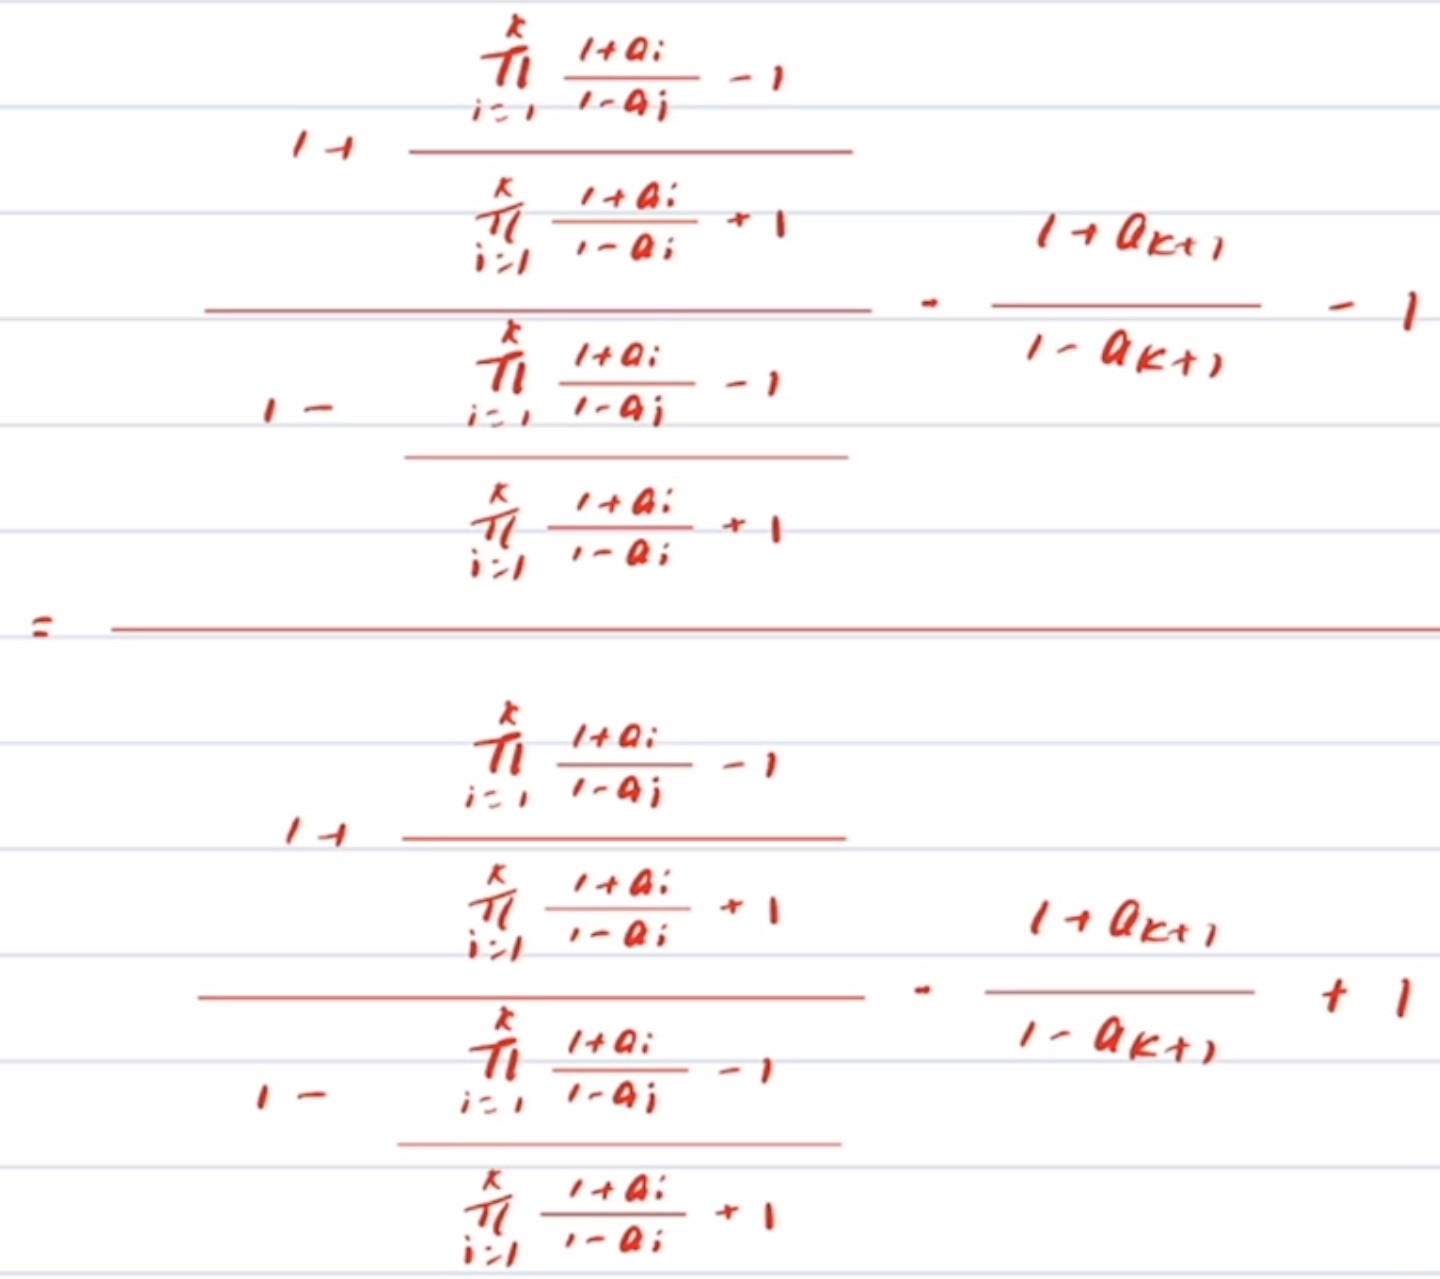 = \frac{\frac{1 + \frac{\prod_{i=1}^{k} \frac{1+a_i}{1-a_i} - 1}{\prod_{i=1}^{k} \frac{1+a_i}{1-a_i} + 1}}{1 - \frac{\prod_{i=1}^{k} \frac{1+a_i}{1-a_i} - 1}{\prod_{i=1}^{k} \frac{1+a_i}{1-a_i} + 1}} \cdot \frac{1+a_{k+1}}{1-a_{k+1}} - 1}{\frac{1 + \frac{\prod_{i=1}^{k} \frac{1+a_i}{1-a_i} - 1}{\prod_{i=1}^{k} \frac{1+a_i}{1-a_i} + 1}}{1 - \frac{\prod_{i=1}^{k} \frac{1+a_i}{1-a_i} - 1}{\prod_{i=1}^{k} \frac{1+a_i}{1-a_i} + 1}} \cdot \frac{1+a_{k+1}}{1-a_{k+1}} + 1}